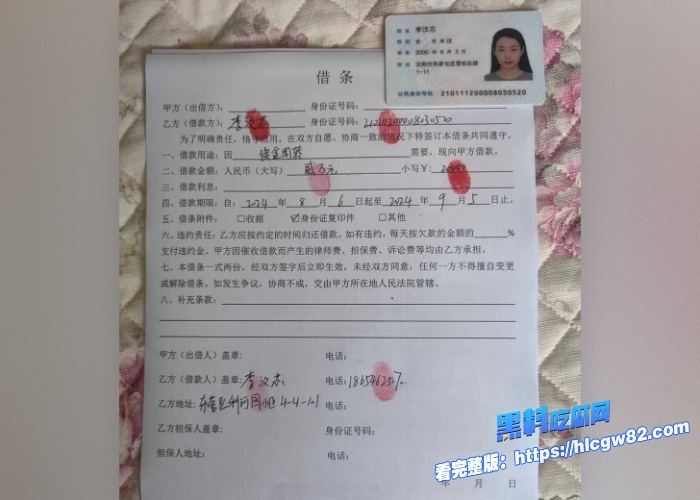 借 条
甲方（出借方）： 身份证号码：
乙方（借款方）： 身份证号码：
为了明确责任，恪守信用，在双方自愿、协商一致的情况下特签订本借条共同遵守。
一、借款用途：因 需要，现向甲方借款。
二、借款金额：人民币（大写） 贰万元 小写￥：
三、借款利息：
四、借款期限：自：2024 年 8 月 6 日起至 2024 年 9 月 5 日止。
五、借条附件：□收据 ☑身份证复印件 □其他
六、违约责任：乙方应按约定的时间归还借款，如有违约，每天按欠款的金额的 %
支付违约金，甲方因催收借款而产生的律师费、担保费、诉讼费等均由乙方承担。
七、本借条一式两份，经双方签字后立即生效，未经双方同意，任何一方不得擅自变更
或解除借条，如发生争议，协商不成，交由甲方所在地人民法院管辖。
八、补充条款：
甲方（出借人）盖章： 电话：
乙方（借款人）盖章： 电话：
乙方地址： 电话：
乙方担保人盖章： 身份证号码：
担保人地址： 电话：
年 月 日
黑料吃瓜网
看完整版：https://hlcgw82.com